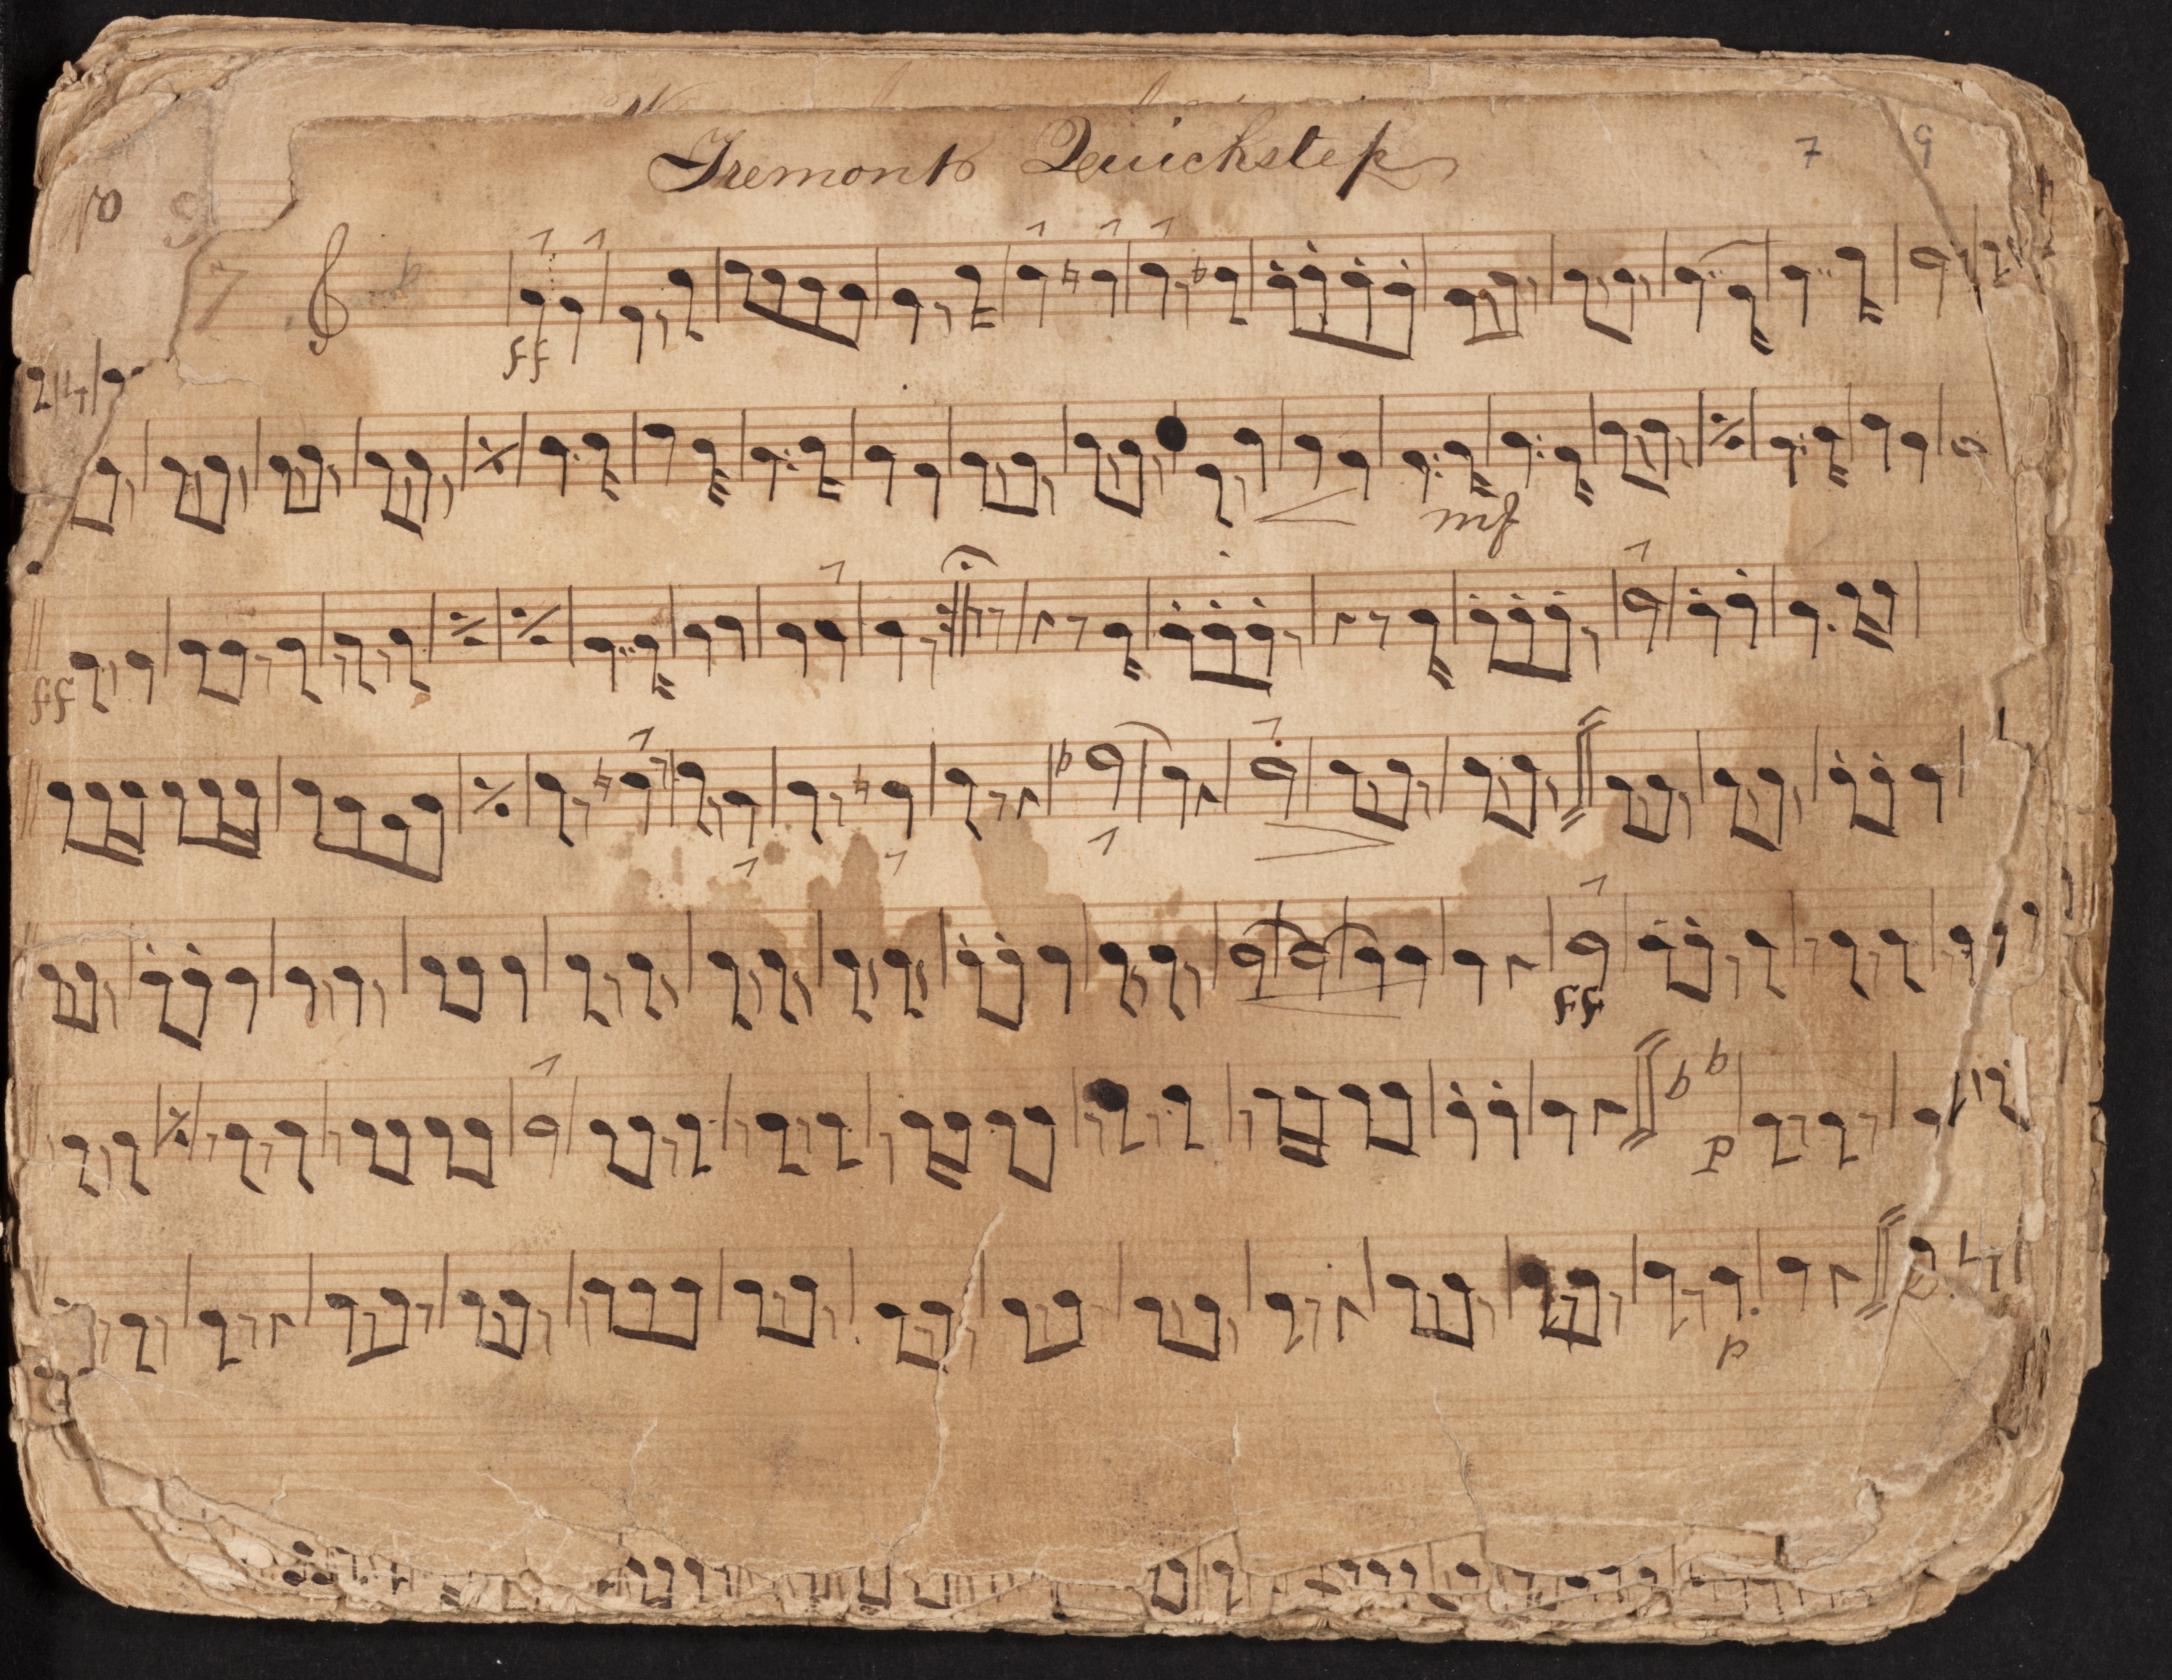 Tremont Quickstep
7 9
7
ff
mf
ff
ff
p
p